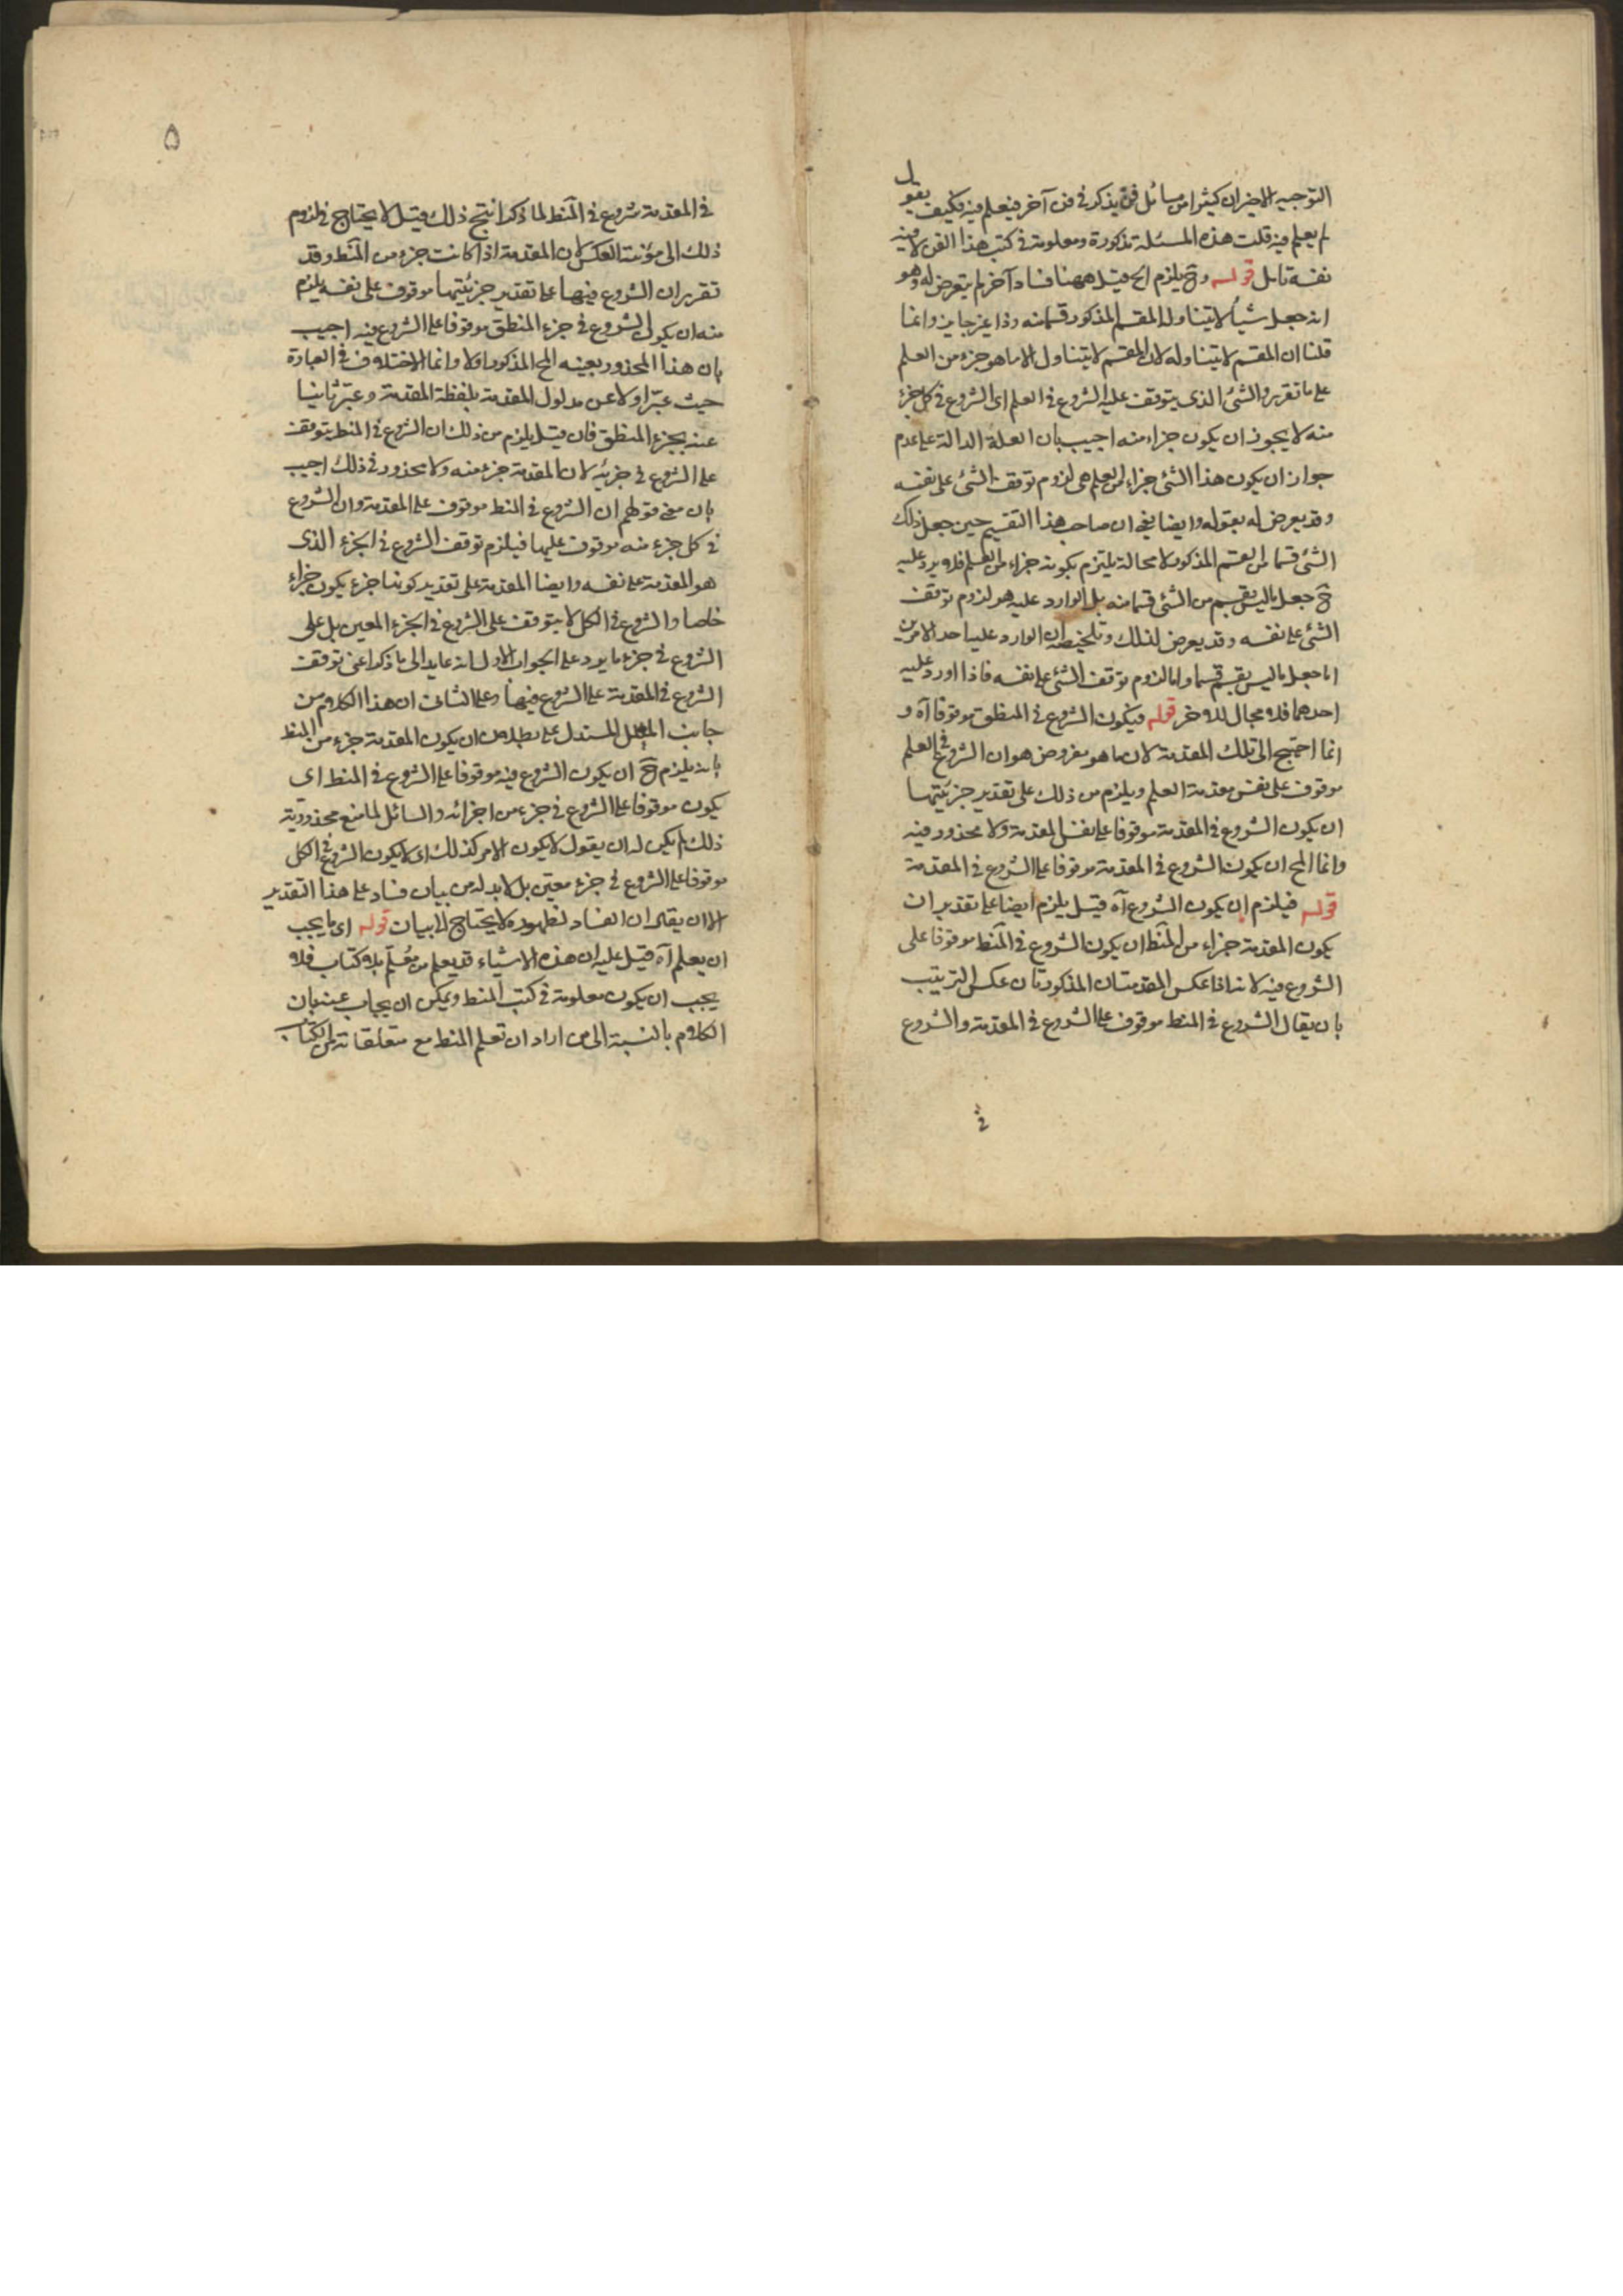 التوجيه الاخير ان كثيرا من مسائل فن يذكر في فن آخر فيعلم فيه فكيف يقول
لم يعلم فيه قلت هذه المسئلة مذكورة ومعلومة في كتب هذا الفن لا فيه
نفسه تامل قوله وح يلزم الخ قيل ههنا فساد آخر لم يتعرض له وهو
انه جعل شيأ لا يتناوله المقسم المذكور قسما منه وذا غير جايز وانما
قلنا ان المقسم لا يتناوله لان المقسم لا يتناول الا ما هو جزء من العلم
على ما تقرير والشئ الذى يتوقف عليه الشروع في العلم اى الشروع في كل جزء
منه لا يجوز ان يكون جزاء منه اجيب بان العلة الدالة على عدم
جواز ان يكون هذا الشئ جزاء من العلم هى لزوم توقف الشئ على نفسه
وقد يعرض له بقوله وايضا ان صاحب هذا التقسيم حين جعل ذلك
الشئ قسما من المقسم المذكور لا محالة يلتزم بكونه جزاء من العلم فلا يرد عليه
ح جعل ما ليس بقسم من الشئ قسما منه بل الوارد عليه هو لزوم توقف
الشئ على نفسه وقد يعرض لذلك وتلخيصه ان الوارد عليه احد الامرين
اما جعل ما ليس بقسم قسما واما لزوم توقف الشئ على نفسه فاذا اورد عليه
احدهما فلا مجال للاخر قوله فيكون الشروع في المنطق موقوفا آه و
انما احتيج الى تلك المقدمة لان ما هو مفروض هو ان الشروع في العلم
موقوف على نفس مقدمة العلم ويلزم من ذلك على تقدير جزئيتها
ان يكون الشروع في المقدمة موقوفا على نفس المقدمة ولا محذور فيه
وانما المح ان يكون الشروع في المقدمة موقوفا على الشروع في المقدمة
قوله فيلزم ان يكون الشروع آه قيل يلزم ايضا على تقدير ان
يكون المقدمة جزاء من المنط ان يكون الشروع في المنط موقوفا على
الشروع فيه لانه اذا عكس المقدمتان المذكورتان عكس الترتيب
بان يقال الشروع في المنط موقوف على الشروع في المقدمة والشروع
في
۵
في المقدمة شروع في المنط لما ذكر انتج ذلك قيل لا يحتاج في لزوم
ذلك الى مؤنة العكس لان المقدمة اذا كانت جزء من المنط وقد
تقرر ان الشروع فيها على تقدير جزئيتها موقوف على نفسه يلزم
منه ان يكون الشروع في جزء المنطق موقوفا على الشروع فيه اجيب
بان هذا المحذور بعينه المح المذكور اولا وانما الاختلاف في العبارة
حيث عبر اولا عن مدلول المقدمة بلفظة المقدمة وعبر ثانيا
عنه بجزء المنطق فان قيل يلزم من ذلك ان الشروع في المنط يتوقف
على الشروع في جزئه لان المقدمة جزء منه ولا محذور في ذلك اجيب
بان معنى قولهم ان الشروع في المنط موقوف على المقدمة وان الشروع
في كل جزء منه موقوف عليها فيلزم توقف الشروع في الجزء الذى
هو المقدمة على نفسه وايضا المقدمة على تقدير كونها جزء يكون جزاء
خاصا والشروع في الكل لا يتوقف على الشروع في الجزء المعين بل على
الشروع في جزء ما يرد على الجواب الاول انه عايد الى ما ذكر اعنى توقف
الشروع في المقدمة على الشروع فيها وعلى الثانى ان هذا الكلام من
جانب المعلل المستدل على بطلان ان يكون المقدمة جزء من المنط
بانه يلزم ح ان يكون الشروع فيه موقوفا على الشروع في المنط اى
يكون موقوفا على الشروع في جزء من اجزائه والسائل لما منع محذورية
ذلك لم يكن له ان يقول لا يكون الامر كذلك اى لا يكون الشروع في الكل
موقوفا على الشروع في جزء معين بل لا بد له من بيان فساد على هذا التقدير
الا ان يقال ان الفساد لظهوره لا يحتاج الى بيان قوله اى ما يجب
ان يعلم آه قيل عليه ان هذه الاشياء قد يعلم من معلم بلا كتاب فلا
يجب ان يكون معلومة في كتب المنط ويمكن ان يجاب عنه بان
الكلام بالنسبة الى من اراد ان تعلم المنط مع متعلقاته من الكتاب